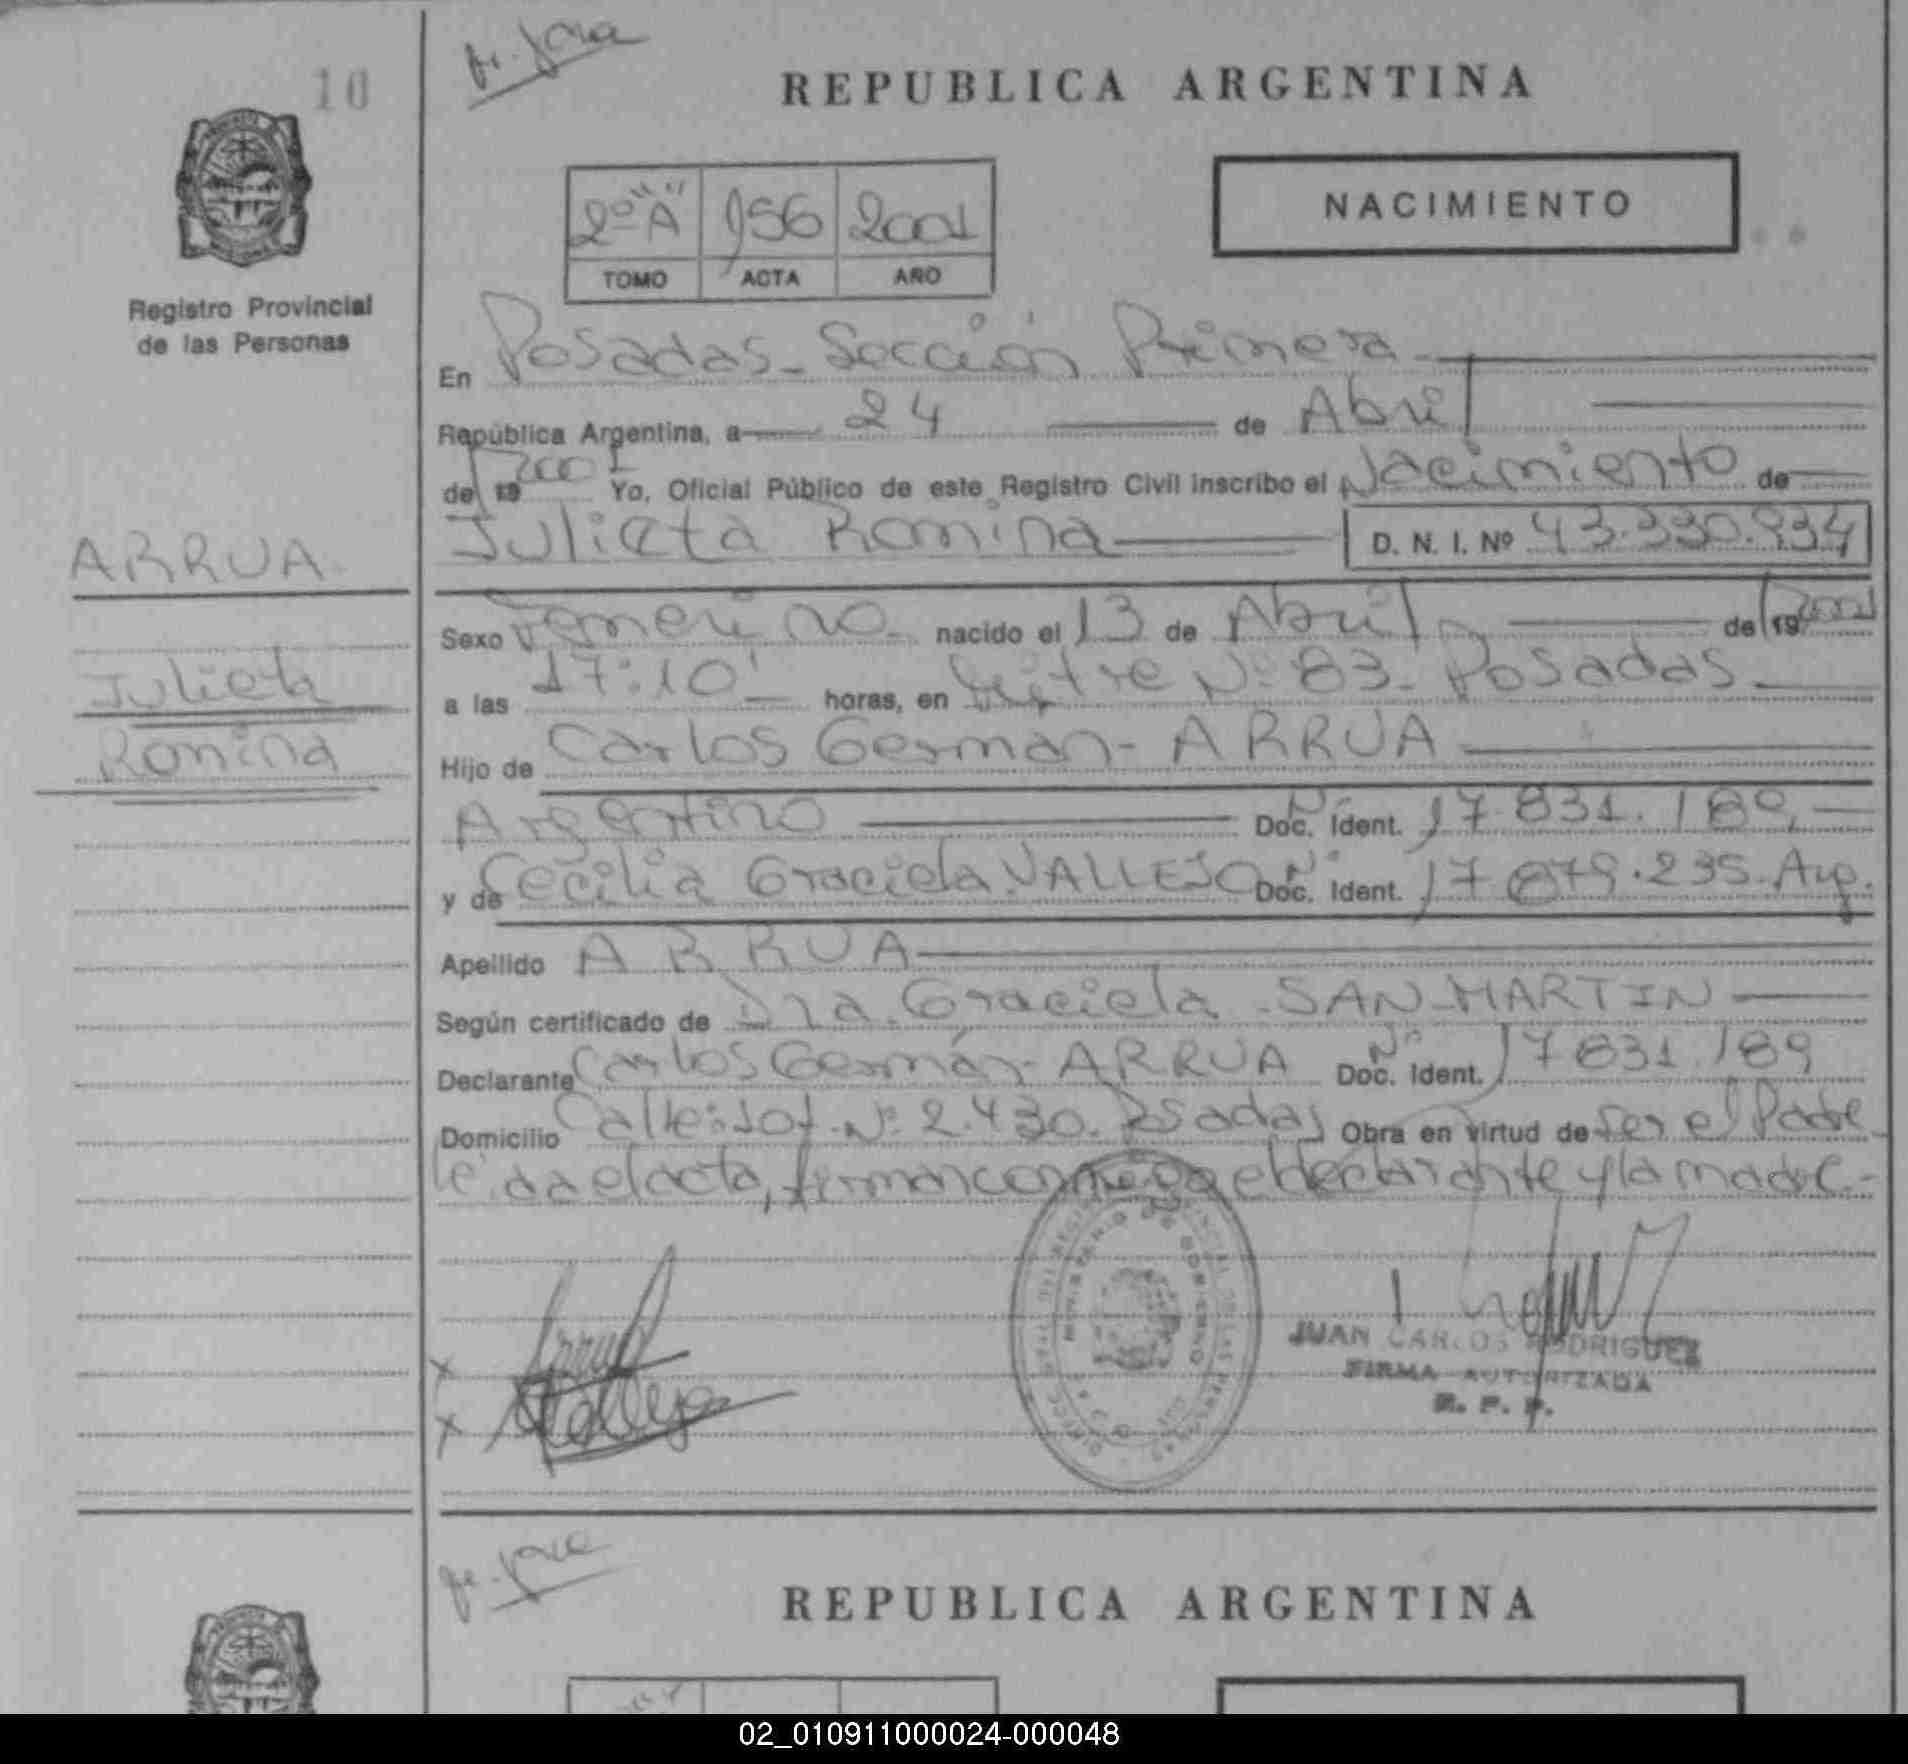 10
Registro Provincial
de las Personas
ARRUA
Julieta
Romina
REPUBLICA ARGENTINA
2º "A" 156 2001
TOMO ACTA AÑO
NACIMIENTO
En Posadas - Sección Primera
República Argentina, a 24 de Abril
de 19 2001 Yo, Oficial Público de este Registro Civil inscribo el Nacimiento de
Julieta Romina D. N. I. Nº 43.330.934
Sexo Femenino nacido el 13 de Abril de 19 2001
a las 17:10' horas, en Mitre Nº 83 - Posadas
Hijo de Carlos German - ARRUA
Argentino Doc. Ident. Nº 17.831.189
y de Cecilia Graciela VALLEJO Doc. Ident. Nº 17.879.235. Arg.
Apellido ARRUA
Según certificado de Dra. Graciela SAN MARTIN
Declarante Carlos Germán - ARRUA Doc. Ident. Nº 17831.189
Domicilio Calle: 107 - Nº 2.430. Posadas Obra en virtud de ser el Padre
leída el acta, firman conmigo el declarante y la madre.-
Arrua
Vallejo
JUAN CARLOS RODRIGUEZ
FIRMA AUTORIZADA
R. P. P.
REPUBLICA ARGENTINA
02_010911000024-000048